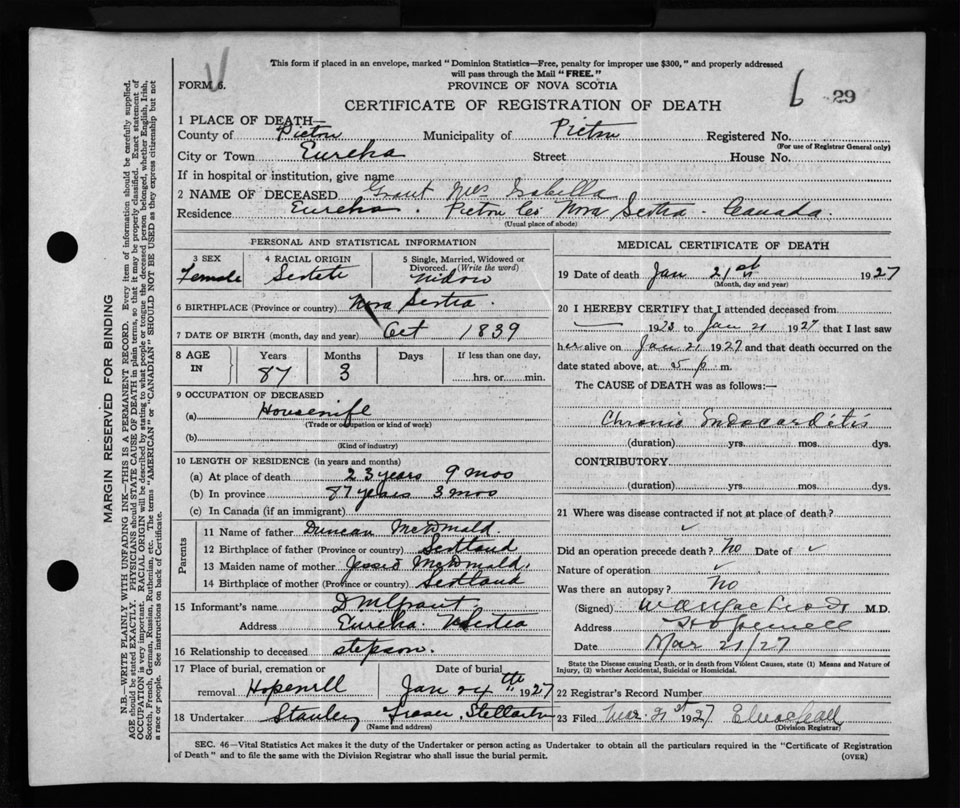 This form if placed in an envelope, marked "Dominion Statistics—Free, penalty for improper use $300," and properly addressed
will pass through the Mail "FREE."
FORM 6.
PROVINCE OF NOVA SCOTIA
CERTIFICATE OF REGISTRATION OF DEATH
6 29
1 PLACE OF DEATH—
County of Pictou Municipality of Pictou Registered No.
(For use of Registrar General only)
City or Town Eureka Street House No.
If in hospital or institution, give name
2 NAME OF DECEASED Grant Mrs Isabella
Residence Eureka. Pictou Co Nova Scotia - Canada.
(Usual place of abode)
PERSONAL AND STATISTICAL INFORMATION
3 SEX Female
4 RACIAL ORIGIN Scotch
5 Single, Married, Widowed or Divorced. (Write the word) Widow
6 BIRTHPLACE (Province or country) Nova Scotia.
7 DATE OF BIRTH (month, day and year) Oct 1839
8 AGE IN Years Months Days If less than one day,
87 3 hrs. or min.
9 OCCUPATION OF DECEASED
(a) Housewife
(Trade or occupation or kind of work)
(b)
(Kind of industry)
10 LENGTH OF RESIDENCE (in years and months)
(a) At place of death 23 years 9 mos
(b) In province 87 years 3 mos
(c) In Canada (if an immigrant)
Parents
11 Name of father Duncan McDonald
12 Birthplace of father (Province or country) Scotland
13 Maiden name of mother Jessie McDonald.
14 Birthplace of mother (Province or country) Scotland
15 Informant's name D M Grant
Address Eureka. N Scotia
16 Relationship to deceased stepson.
17 Place of burial, cremation or removal Hopewell Date of burial Jan 24th 1927
18 Undertaker Stanley Fraser, Stellarton
(Name and address)
MEDICAL CERTIFICATE OF DEATH
19 Date of death Jan 21st 1927
(Month, day and year)
20 I HEREBY CERTIFY that I attended deceased from
1923 to Jan 21 1927 that I last saw
her alive on Jan 21 1927 and that death occurred on the
date stated above, at 5 p. m.
The CAUSE of DEATH was as follows:—
Chronic Endocarditis
(duration) yrs. mos. dys.
CONTRIBUTORY
(duration) yrs. mos. dys.
21 Where was disease contracted if not at place of death?
Did an operation precede death? No Date of
Nature of operation
Was there an autopsy? No
(Signed) M.D.
Address Hopewell
Date Mar 21/27
State the Disease causing Death, or in death from Violent Causes, state (1) Means and Nature of
Injury, (2) whether Accidental, Suicidal or Homicidal.
22 Registrar's Record Number
23 Filed Mar. 21st 1927
(Division Registrar)
SEC. 46—Vital Statistics Act makes it the duty of the Undertaker or person acting as Undertaker to obtain all the particulars required in the "Certificate of Registration
of Death" and to file the same with the Division Registrar who shall issue the burial permit.
(OVER)
MARGIN RESERVED FOR BINDING
N.B.—WRITE PLAINLY WITH UNFADING INK—THIS IS A PERMANENT RECORD. Every item of information should be carefully supplied.
AGE should be stated EXACTLY. PHYSICIANS should STATE CAUSE OF DEATH in plain terms, so that it may be properly classified. Exact statement of
OCCUPATION is very important. RACIAL ORIGIN will be described by stating to what people or tongue the deceased person belonged, whether English, Irish,
Scotch, French, German, Russian, Ruthenian, etc. The terms "AMERICAN" or "CANADIAN" SHOULD NOT BE USED as they express citizenship but not
a race or people. See instructions on back of Certificate.